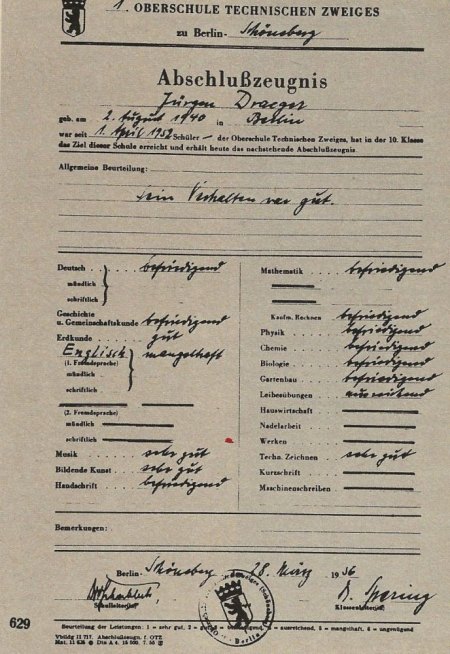 1. OBERSCHULE TECHNISCHEN ZWEIGES
zu Berlin- Schöneberg
Abschlußzeugnis
Jürgen Draeger
geb. am 2. August 1940 in Berlin
war seit 1. April 1952 Schüler – der Oberschule Technischen Zweiges, hat in der 10. Klasse
das Ziel dieser Schule erreicht und erhält heute das nachstehende Abschlußzeugnis.
Allgemeine Beurteilung:
Sein Verhalten war gut.
Deutsch befriedigend
mündlich
schriftlich
Geschichte
u. Gemeinschaftskunde befriedigend
Erdkunde gut
Englisch mangelhaft
(1. Fremdsprache)
mündlich
schriftlich
(2. Fremdsprache)
mündlich
schriftlich
Musik sehr gut
Bildende Kunst sehr gut
Handschrift befriedigend
Mathematik befriedigend
Kaufm. Rechnen befriedigend
Physik befriedigend
Chemie befriedigend
Biologie befriedigend
Gartenbau befriedigend
Leibesübungen ausreichend
Hauswirtschaft
Nadelarbeit
Werken
Techn. Zeichnen sehr gut
Kurzschrift
Maschinenschreiben
Bemerkungen:
Berlin- Schöneberg 28. März 1956
Schulleiter
Klassenleiter
Berlin
Beurteilung der Leistungen: 1 = sehr gut, 2 = gut, 3 = befriedigend, 4 = ausreichend, 5 = mangelhaft, 6 = ungenügend
Vbildg II 717. Abschlußzeugn. f. OTZ
629